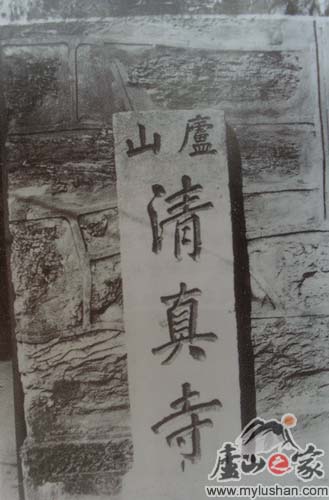 廬山
清真寺
廬山之家
www.mylushan.com